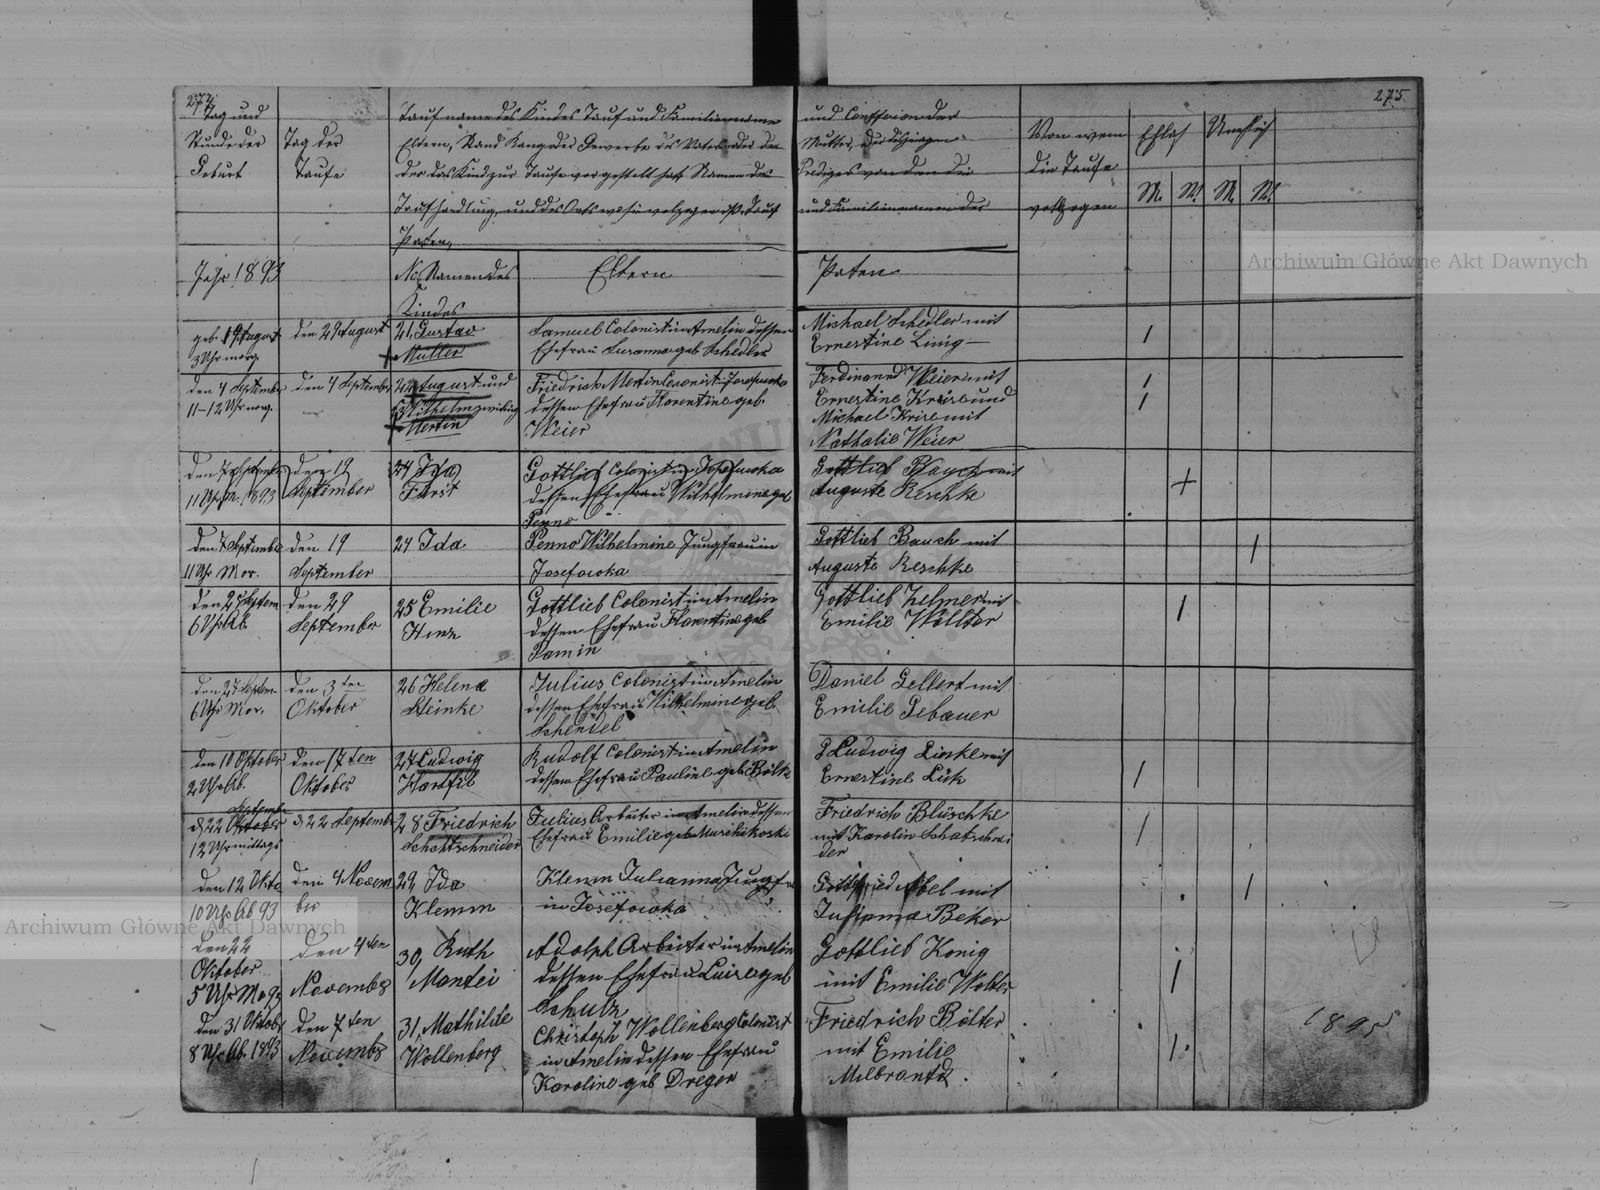 274
275
Tag und
Stunde der
Geburt
Tag der
Taufe
Taufname des Kindes Tauf und Familienname
Eltern, Stand Rang oder Gewerbe des Vaters oder der
der das Kind zur Taufe vorgestellt hat Namen des
Taufhandlung, und des Orts wo sie vollzogen ist, Tauf
Paten,
und Confession der
Mutter, oder desjenigen
Prediger von dem die
und Familiennamen der
Von wem
die Taufe
vollzogen
Ehlich
Unehlich
M. W. M. W.
Jahr 1893
No Namen des
Kindes
Eltern
Paten
geb. 19 August
3 Uhr morg.
den 29 August
21, Gustav
Müller
Samuel Colonist in Amelin dessen
Ehefrau Susanna geb Schedler
Michael Schedler mit
Ernestine
den 4 September
11-12 Uhr morg.
den 4 September
22 August und
23 Wilhelm zwilling
Mertin
Friedrich Mertin Colonist in Josefowka
dessen Ehefrau Florentine geb.
Weier
Ferdinand Weier mit
Ernestine Krise und
Michael Krise mit
Nathalie Weier
den 7 September
11 Uhr M. 1893
den 19
September
24 Ida
Fürst
Gottlieb Colonist in Josefowka
dessen Ehefrau Wilhelmine geb
Penno
Gottlieb Bauch mit
Auguste Reschke
den 7 September
11 Uhr Mor.
den 19
September
24 Ida
Penno Wilhelmine Jungfrau in
Josefowka
Gottlieb Bauch mit
Auguste Reschke
den 27 Septem
6 Uhr Ab.
den 29
September
25 Emilie
Hinz
Gottlieb Colonist in Amelin
dessen Ehefrau Florentine geb
Pamin
Gottlieb Zelmer mit
Emilie Wollter
den 27 Septem.
6 Uhr Mor.
den 3ten
Oktober
26 Helene
Steinke
Julius Colonist in Amelin
dessen Ehefrau Wilhelmine geb.
Schendel
Daniel Gellert mit
Emilie Gebauer
den 10 Oktober
2 Uhr Ab.
den 17ten
Oktober
27 Ludwig
Rudolf Colonist in Amelin
dessen Ehefrau Pauline geb. Bölke
Ludwig Linke mit
Ernestine Lük
September
d 22 Oktober
12 Uhr mittags
d 22 Septemb
28 Friedrich
Schattschneider
Julius Arbeiter in Amelin dessen
Ehefrau Emilie geb
Friedrich Blüschke
mit Karolin Schatschnei
der
den 12 Okto
10 Uhr Ab 93
den 4 Novem
ber
29, Ida
Klemm
Klemm Julianna Jungfr
in Josefowka
Gottfried Abel mit
Julianna Beker
den 22
Oktober
5 Uhr Mo 93
den 4ten
November
30, Ruth
Mantei
Adolph Arbeiter in Amelin
dessen Ehefrau Luise geb
Schulz
Gottlieb Konig
mit Emilie Wolter
den 31 Oktobr
8 Uhr Ab. 1893
den 7ten
November
31, Mathilde
Wollenberg
Christoph Wollenberg Colonist
in Amelin dessen Ehefrau
Karoline geb Dreger
Friedrich Bölter
mit Emilie
Milbrandt
1895
Archiwum Główne Akt Dawnych
Archiwum Główne Akt Dawnych